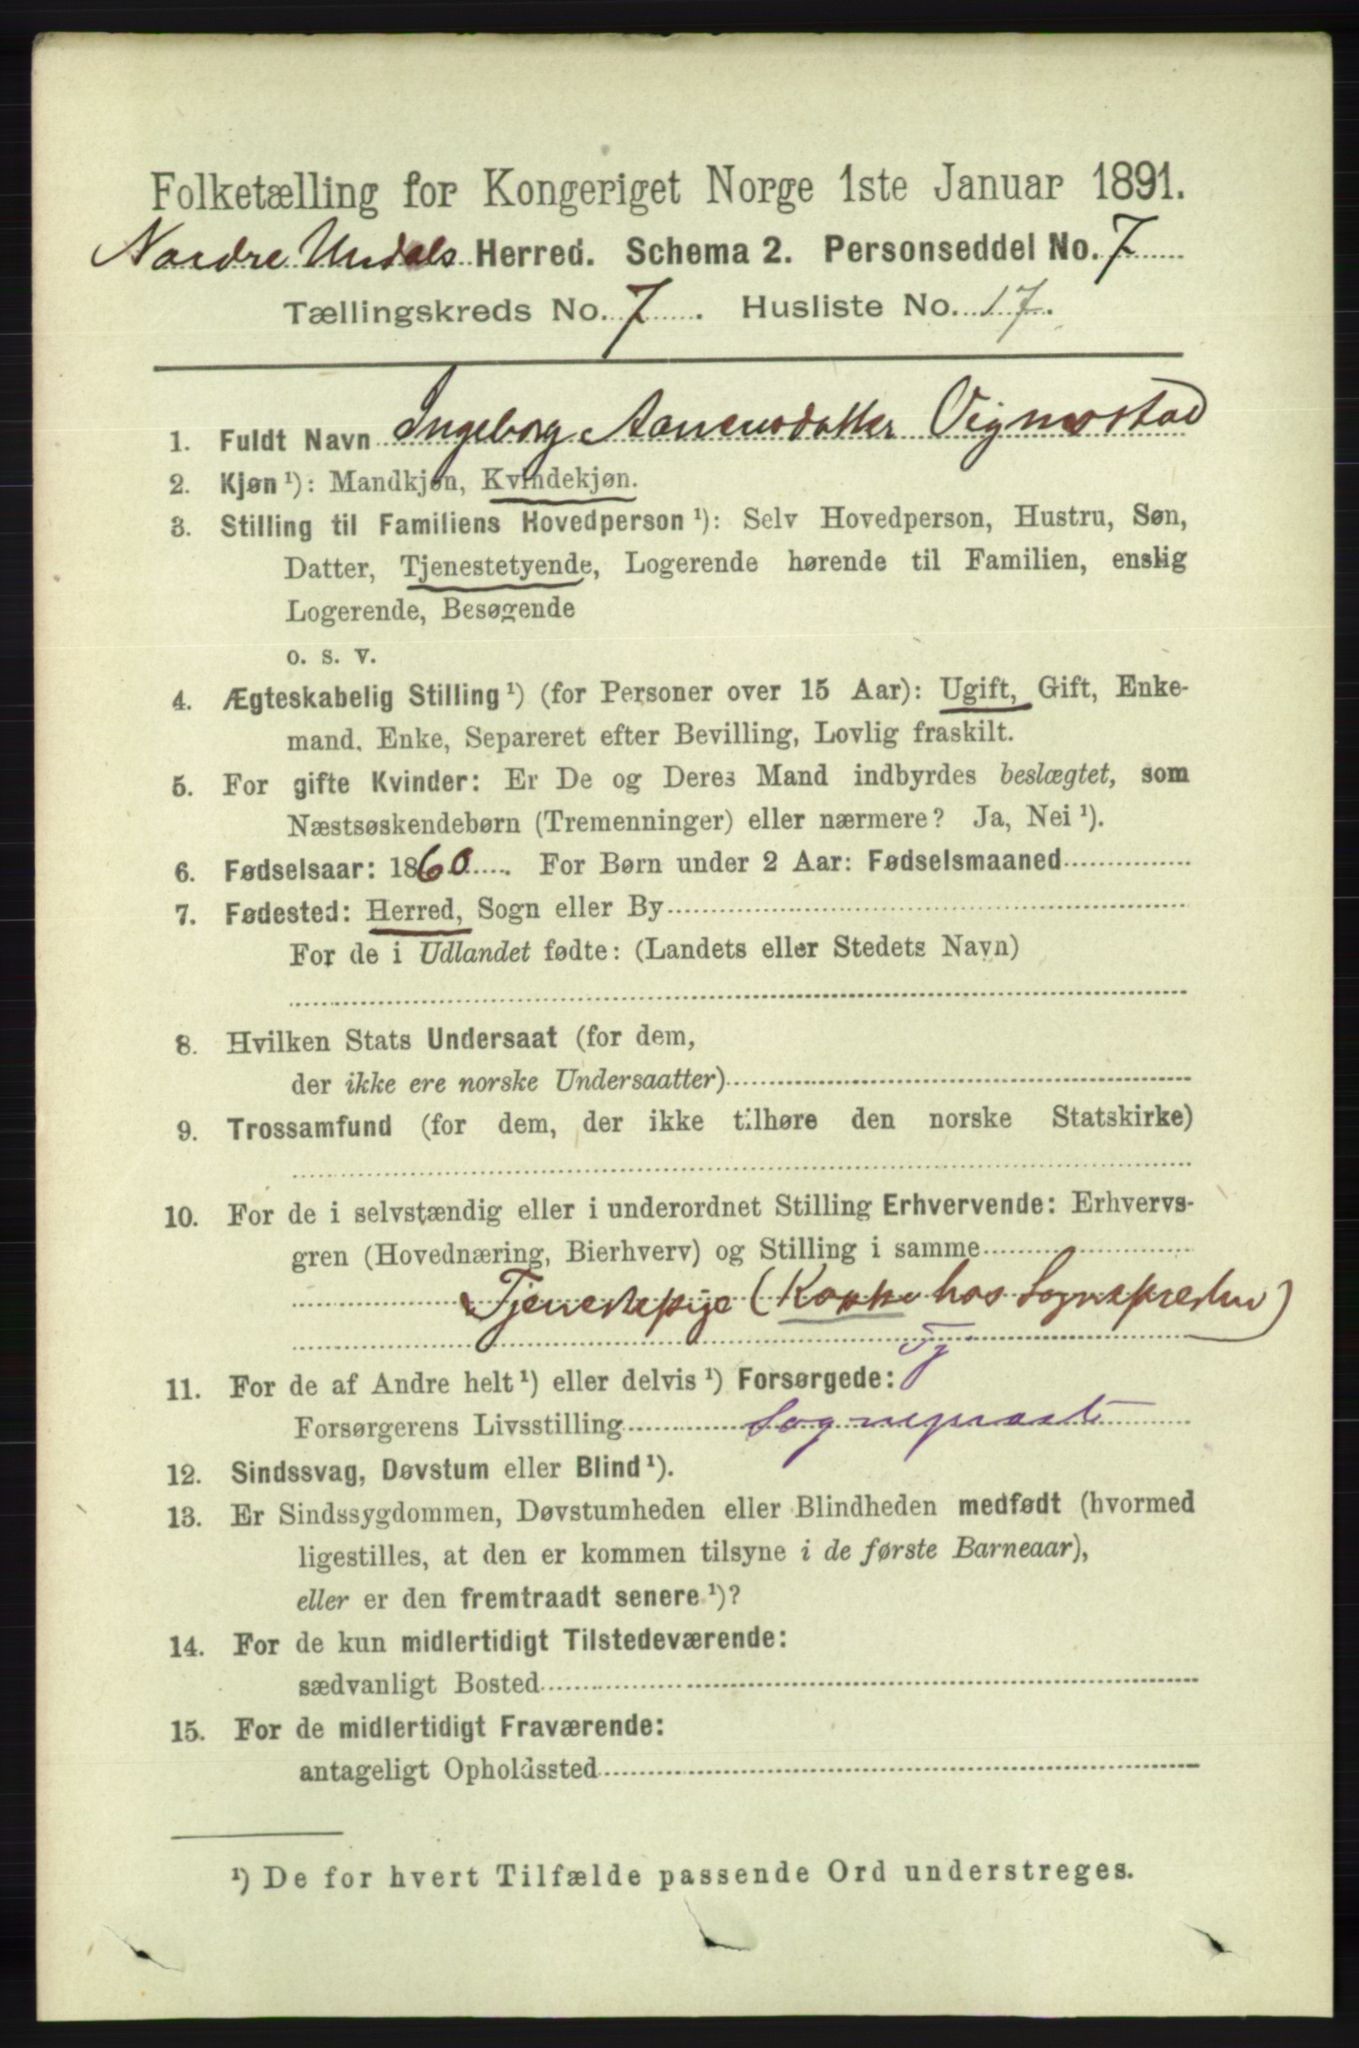 Folketælling for Kongeriget Norge 1ste Januar 1891.
Nordre Undals Herred. Schema 2. Personseddel No. 7
Tællingskreds No. 7. Husliste No. 17.
1. Fuldt Navn Ingeborg Aanensdatter Vigmostad
2. Kjøn¹): Mandkjøn, Kvindekjøn.
3. Stilling til Familiens Hovedperson¹): Selv Hovedperson, Hustru, Søn,
Datter, Tjenestetyende, Logerende hørende til Familien, enslig
Logerende, Besøgende
o. s. v.
4. Ægteskabelig Stilling¹) (for Personer over 15 Aar): Ugift, Gift, Enke-
mand, Enke, Separeret efter Bevilling, Lovlig fraskilt.
5. For gifte Kvinder: Er De og Deres Mand indbyrdes beslægtet, som
Næstsøskendebørn (Tremenninger) eller nærmere? Ja, Nei¹).
6. Fødselsaar: 1860. For Børn under 2 Aar: Fødselsmaaned
7. Fødested: Herred, Sogn eller By
For de i Udlandet fødte: (Landets eller Stedets Navn)
8. Hvilken Stats Undersaat (for dem,
der ikke ere norske Undersaatter)
9. Trossamfund (for dem, der ikke tilhøre den norske Statskirke)
10. For de i selvstændig eller i underordnet Stilling Erhvervende: Erhvervs-
gren (Hovednæring, Bierhverv) og Stilling i samme
Tjenestepige (Kokke hos Sognepresten)
Tj
11. For de af Andre helt¹) eller delvis¹) Forsørgede:
Forsørgerens Livsstilling Sogneprest
12. Sindssvag, Døvstum eller Blind¹).
13. Er Sindssygdommen, Døvstumheden eller Blindheden medfødt (hvormed
ligestilles, at den er kommen tilsyne i de første Barneaar),
eller er den fremtraadt senere¹)?
14. For de kun midlertidigt Tilstedeværende:
sædvanligt Bosted
15. For de midlertidigt Fraværende:
antageligt Opholdssted
¹) De for hvert Tilfælde passende Ord understreges.